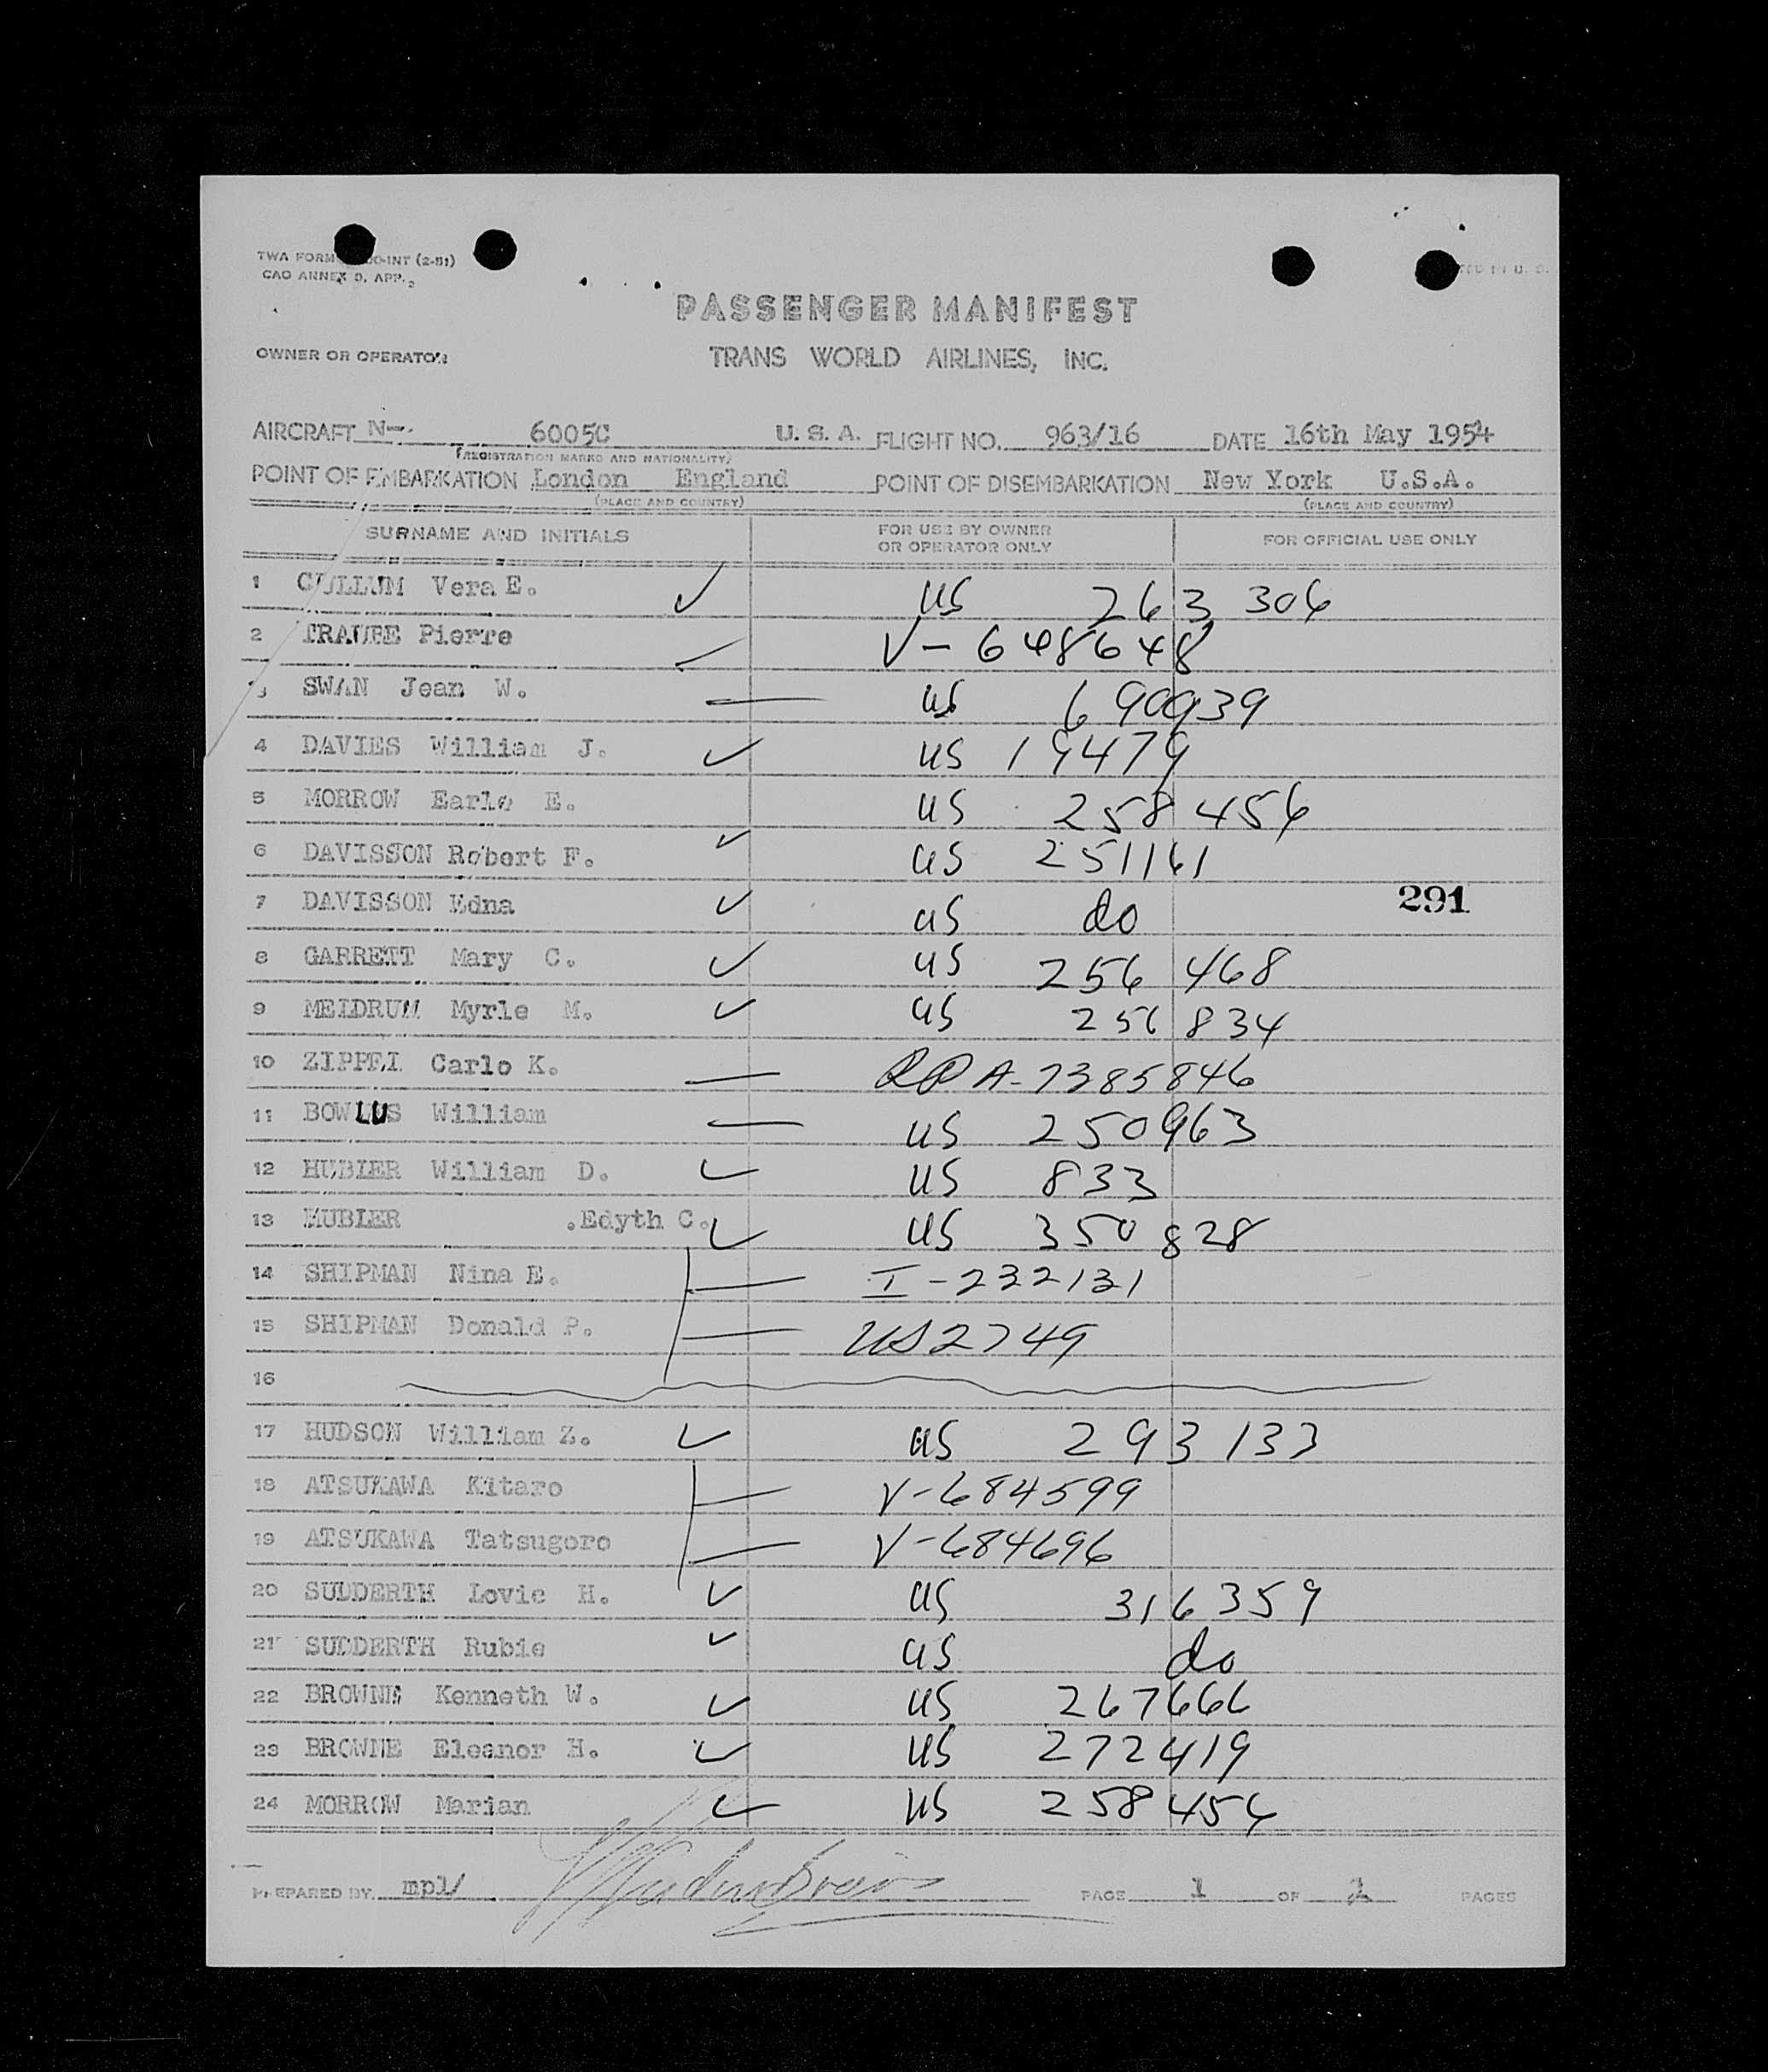 TWA FORM OO-INT (2-51)
CAO ANNEX D, APP. 2
IN U. S.
PASSENGER MANIFEST
OWNER OR OPERATOR TRANS WORLD AIRLINES, INC.
AIRCRAFT N- 6005C U. S. A. FLIGHT NO. 963/16 DATE 16th May 1954
(REGISTRATION MARKS AND NATIONALITY)
POINT OF EMBARKATION London England POINT OF DISEMBARKATION New York U.S.A.
(PLACE AND COUNTRY) (PLACE AND COUNTRY)
SURNAME AND INITIALS FOR USE BY OWNER OR OPERATOR ONLY FOR OFFICIAL USE ONLY
1 CULLUM Vera E. ✓ US 263 306
2 TRAUBE Pierre V-648648
3 SWAN Jean W. — US 690939
4 DAVIES William J. ✓ US 19479
5 MORROW Earle E. US 258 456
6 DAVISSON Robert F. ✓ US 251161
7 DAVISSON Edna ✓ US do
291
8 GARRETT Mary C. ✓ US 256 468
9 MELDRUM Myrle M. ✓ US 256 834
10 ZIPPEI Carlo K. — A-7385846
11 BOWLUS William — US 250963
12 HUBLER William D. ✓ US 833
13 HUBLER .Edyth C. ✓ US 350 828
14 SHIPMAN Nina E. — I-232131
15 SHIPMAN Donald P. — US 2749
16
17 HUDSON William Z. ✓ US 293 133
18 ATSUKAWA Kitaro — V-684599
19 ATSUKAWA Tatsugoro — V-684696
20 SUDDERTH Lovie H. ✓ US 316359
21 SUDDERTH Rubie ✓ US do
22 BROWNE Kenneth W. ✓ US 267666
23 BROWNE Eleanor H. ✓ US 272419
24 MORROW Marian ✓ US 258 456
PREPARED BY mpl/ PAGE 1 OF 2 PAGES